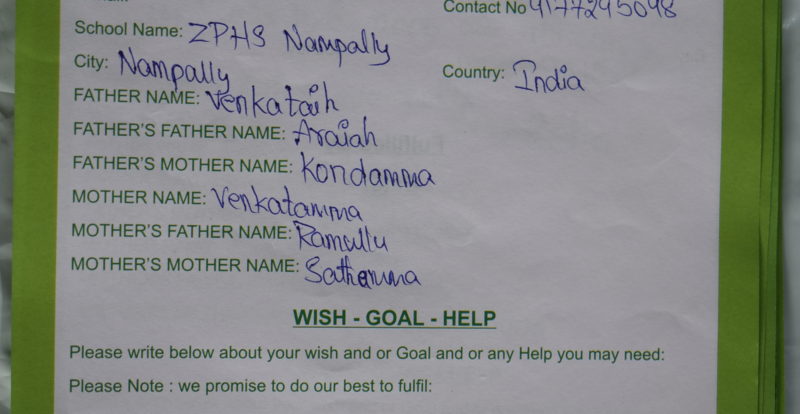 Contact No 9177245098
School Name: ZPHS Nampally
City: Nampally
Country: India
FATHER NAME: Venkataih
FATHER'S FATHER NAME: Araiah
FATHER'S MOTHER NAME: Kondamma
MOTHER NAME: Venkatamma
MOTHER'S FATHER NAME: Ramullu
MOTHER'S MOTHER NAME: Sathemma
WISH - GOAL - HELP
Please write below about your wish and or Goal and or any Help you may need:
Please Note : we promise to do our best to fulfil: